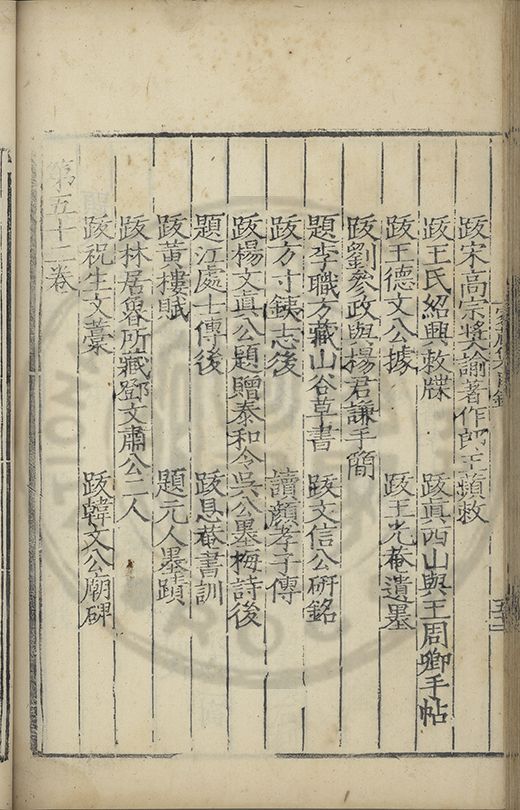 跋宋高宗奬諭著作郎王蘋敕
跋王氏紹興敕牒 跋真西山與王周卿手帖
跋王德文公據 跋王光菴遺墨
跋劉參政與楊君謙手簡
題李職方藏山谷草書 跋文信公硏銘
跋方寸鉄志後 讀顔孝子傳
跋楊文真公題贈泰和令吳公墨梅詩後
題江處士傳後 跋息菴書訓
跋黄樓賦 題元人墨蹟
跋林居魯所藏鄧文肅公二人
跋祝生文藁 跋韓文公廟碑
第五十二卷